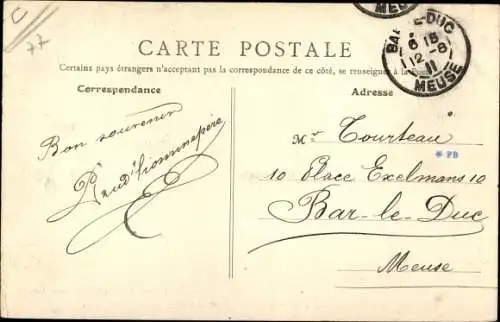 C
77
CARTE POSTALE
Certains pays étrangers n'acceptant pas la correspondance de ce côté, se renseigner à la
BAR-LE-DUC
6 15
12-8
11
MEUSE
MEUSE
Correspondance
Adresse
Bon souvenir
Prud'hommepère
Mr Tourteau
* PD
10 Place Exelmans 10
Bar-le-Duc
Meuse